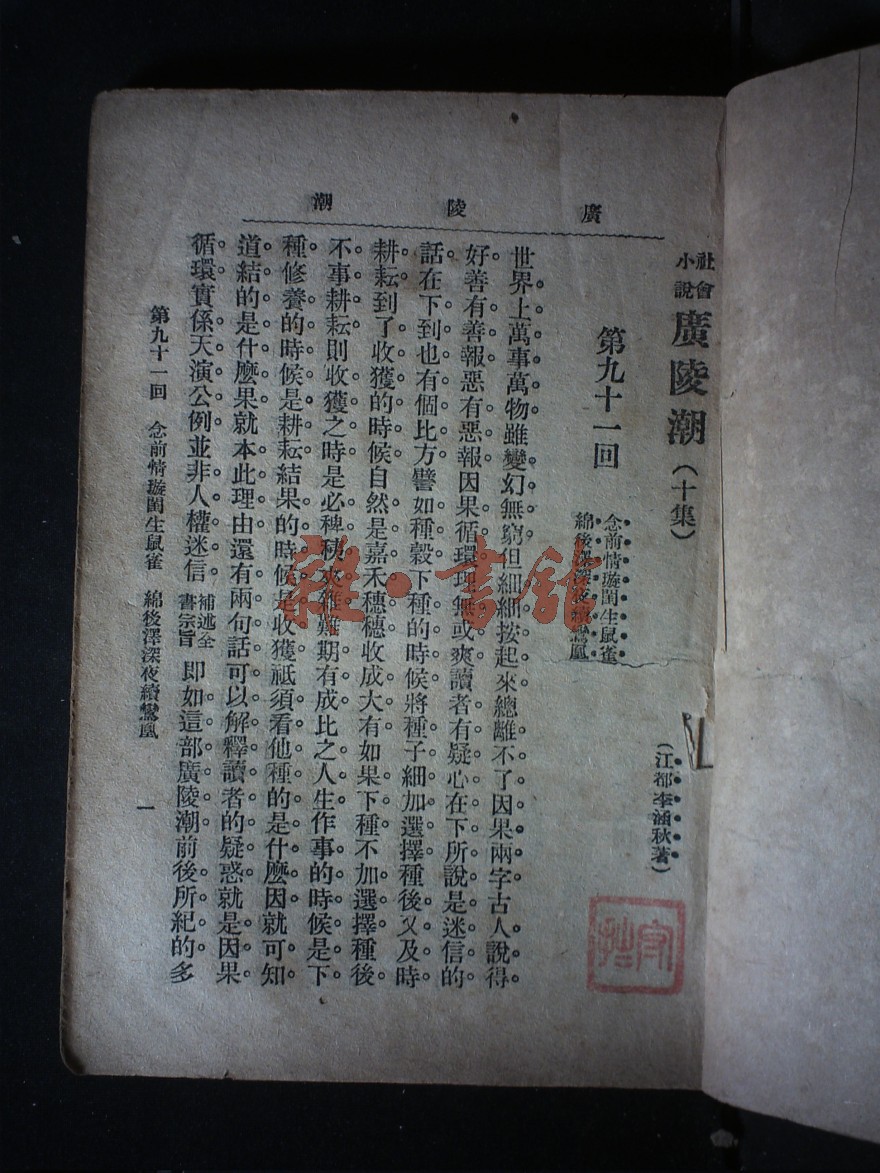 廣陵潮
社會
小說
廣陵潮(十集)
(江都李涵秋著)
第九十一回
念前情璇閨生鼠雀
綿後澤深夜續鸞凰
世界上萬事萬物雖變幻無窮但細細按起來總離不了因果兩字古人說得
好善有善報惡有惡報因果循環理無或爽讀者有疑心在下所說是迷信的
話在下到也有個比方譬如種穀下種的時候將種子細加選擇種後又及時
耕耘到了收獲的時候自然是嘉禾穗穗收成大有如果下種不加選擇種後
不事耕耘則收獲之時是必稗稊夾雜難期有成比之人生作事的時候是下
種修養的時候是耕耘結果的時候是收獲祇須看他種的是什麼因就可知
道結的是什麼果就本此理由還有兩句話可以解釋讀者的疑惑就是因果
循環實係天演公例並非人權迷信
補述全
書宗旨
即如這部廣陵潮前後所紀的多
第九十一回 念前情璇閨生鼠雀 綿後澤深夜續鸞凰
一
雜·書館